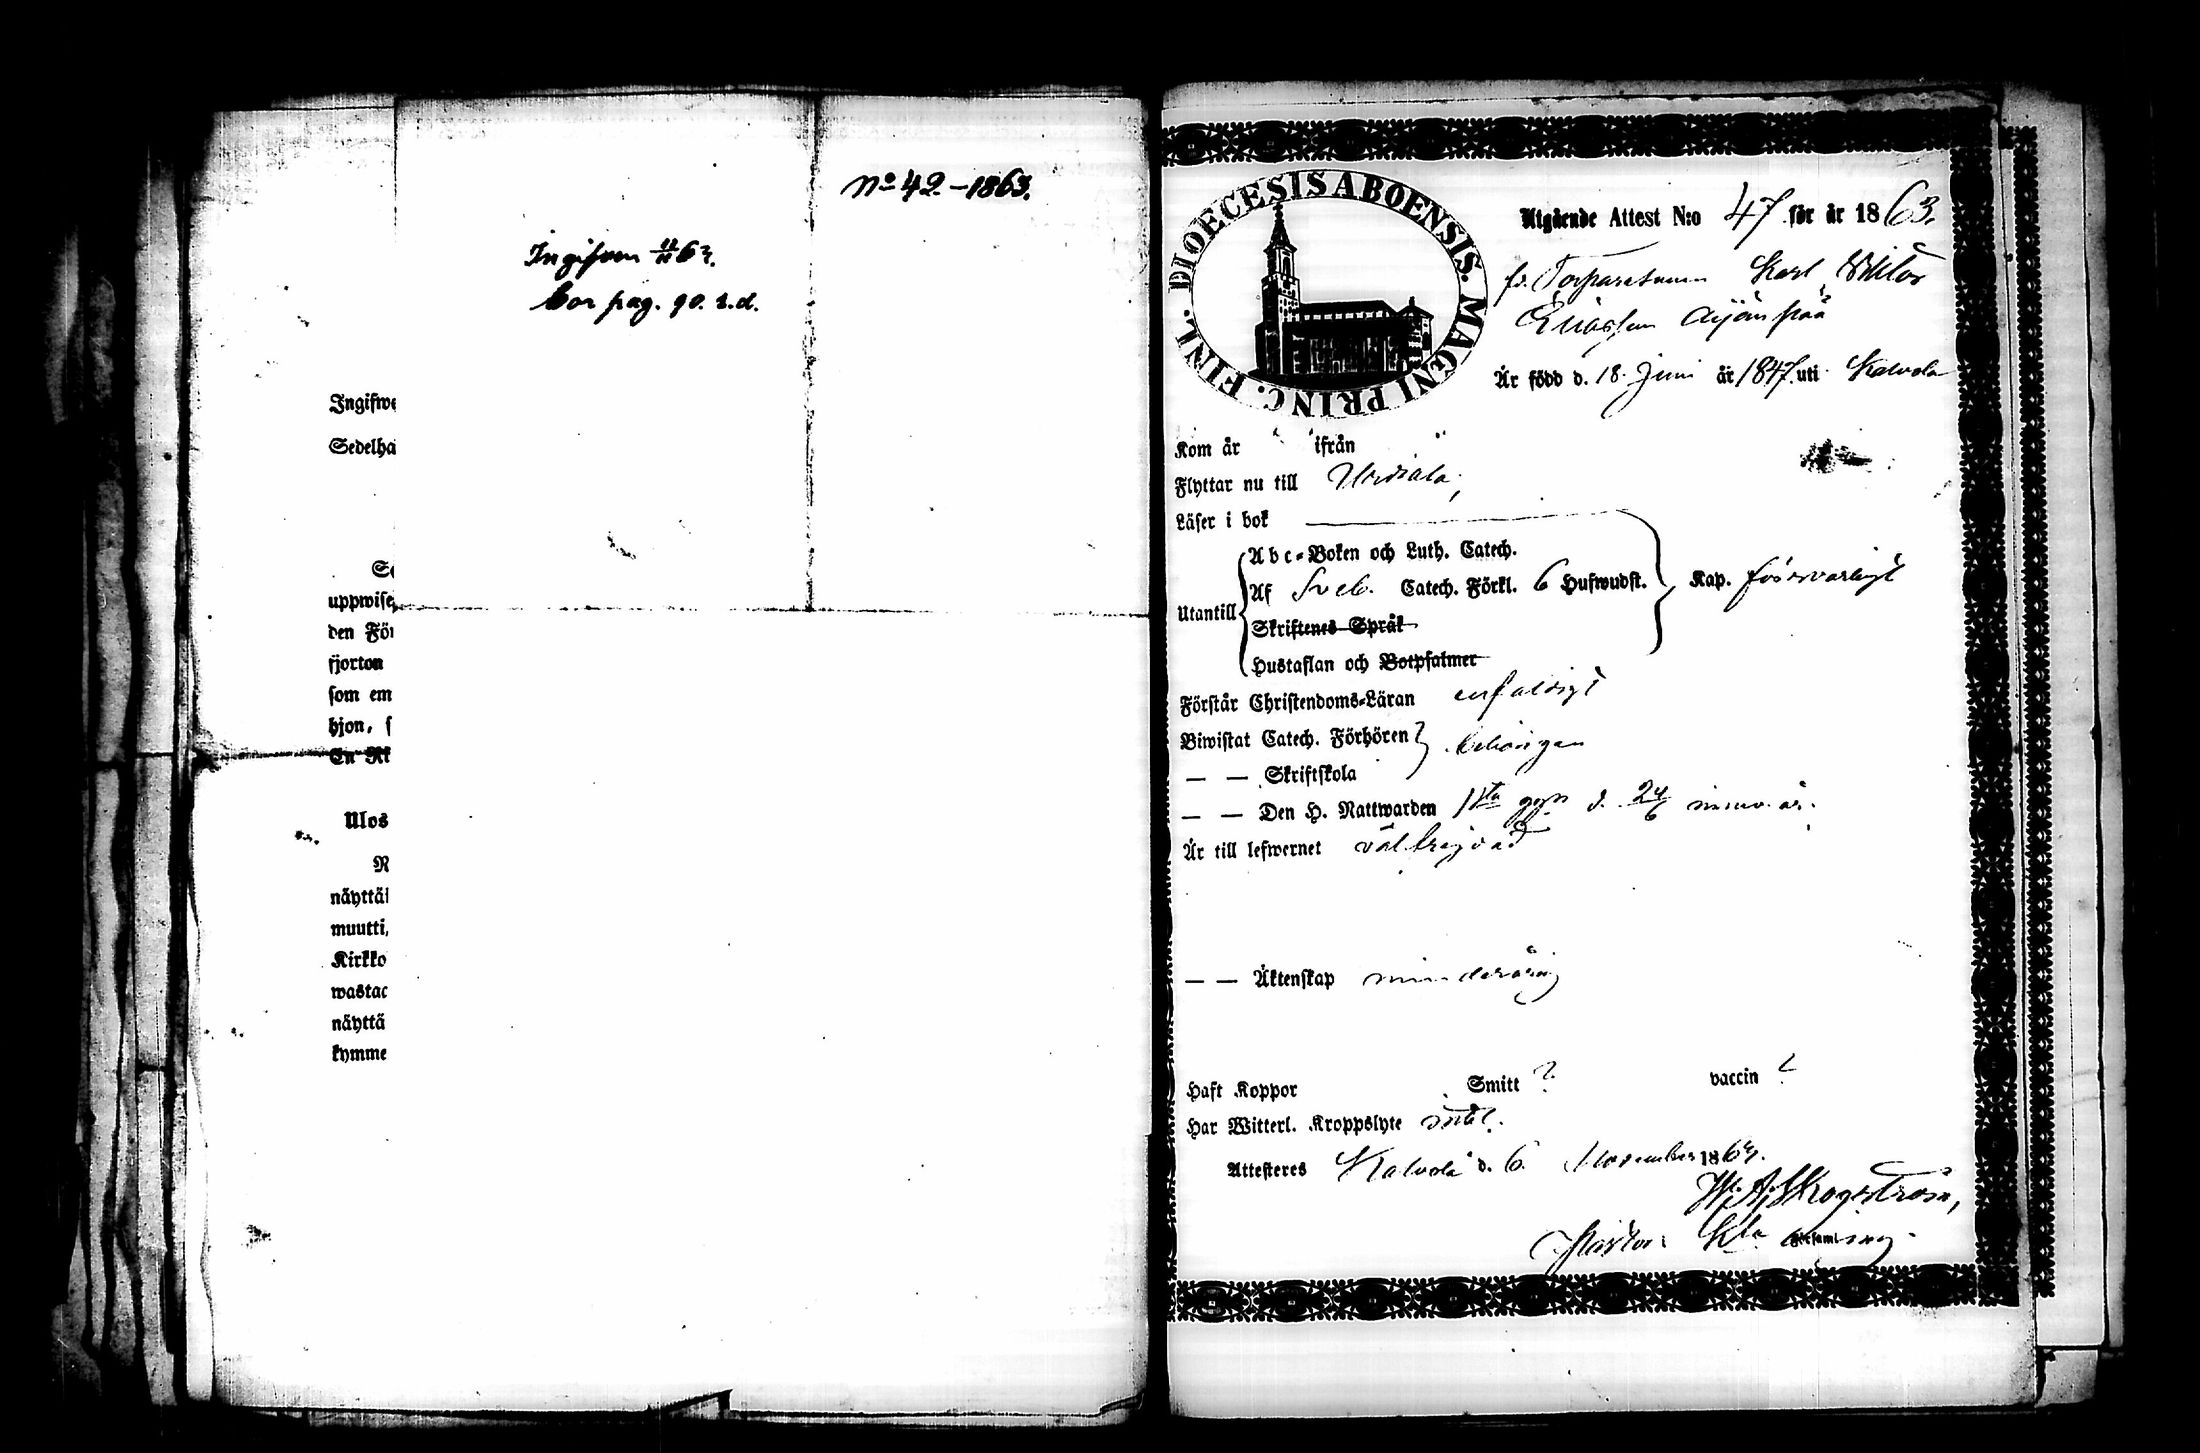 No 42.–1863.
Ingifven 11/11 63.
bor pag. 90. r.d.
Ingifwe
Sedelha
uppwise
den För
fjorton
som em
hjon, s
En Ri
Ulos
näyttäi
muutti,
Kirkko
wastac
näyttä
kymme
DIOECESIS ABOENSIS. MAGNI PRINC. FINL.
Utgående Attest N:o 47 för år 1863.
Karl Viktor
Eliasson Äijänpää
Är född d. 18. Juni år 1847. uti Kalvola
Kom år " ifrån "
Flyttar nu till Urdiala,
Läser i bok
Utantill
Abc-Boken och Luth. Catech.
Af Sveb. Catech. Förkl. 6 Hufwudst.
Skriftenes Språk
Hustaflan och Botpsalmer
Kap. försvarligt
Förstår Christendoms-Läran enfaldigt
Biwistat Catech. Förhören
— — Skriftskola
behörigen
— — Den H. Nattwarden 1sta ggn d. 24/6 innev. år.
Är till lefwernet välfrejdad
— — Äktenskap minderårig
Haft Koppor Smitt ? vaccin ?
Har Witterl. Kroppslyte intet.
Attesteres Kalvola d. 6. November 1863.
Skogström,
Pastor